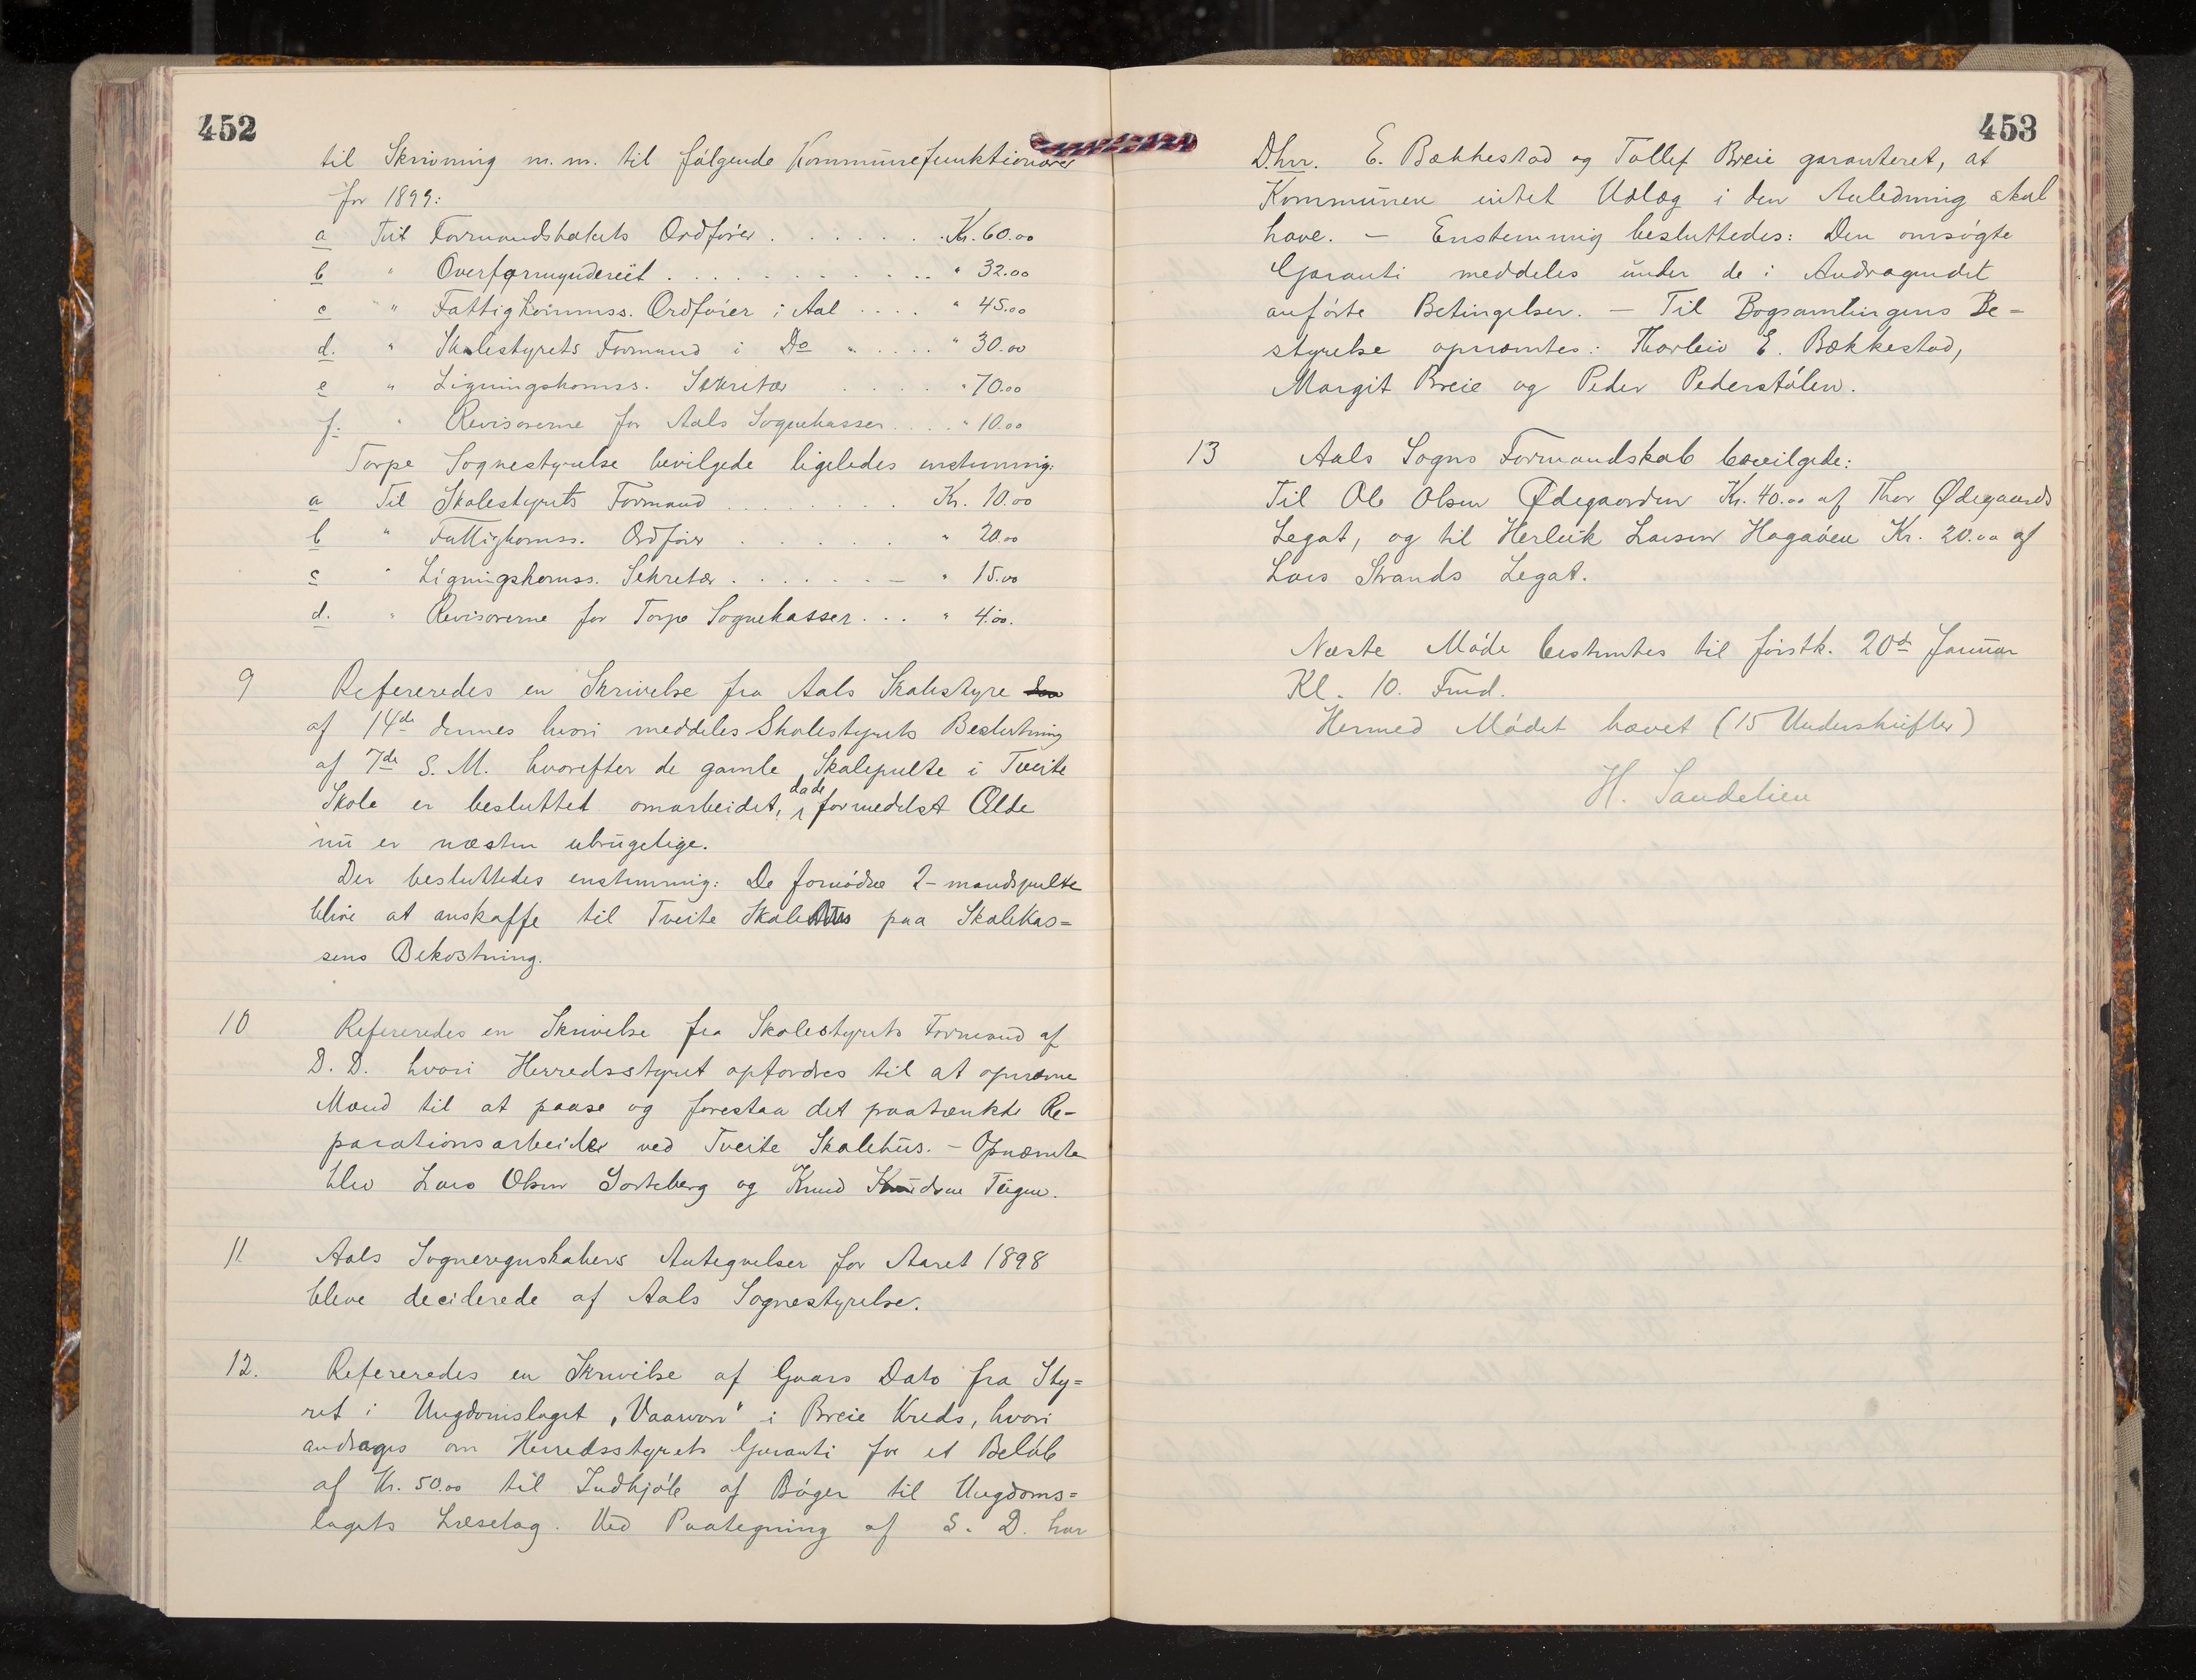 452
til Skrivning m. m. til følgende Kommunefunktionærer
for 1899:
a Til Formandskabets Ordfører . . . . . . . Kr. 60.00
b " Overformynderiet . . . . . . . . . . . " 32.00
c " Fattigkommss. Ordfører i Aal . . . . " 45.00
d. " Skolestyrets Formand i Do " . . . . " 30.00
e " Ligningskomss. Sekretær . . . . " 70.00
f. " Revisorerne for Aals Sognekasser . . . . " 10.00
Torpe Sognestyrelse bevilgede ligeledes enstemmig:
a Til Skolestyrets Formand . . . . . . . . Kr. 10.00
b " Fattigkomss. Ordfører . . . . . " 20.00
c " Ligningskomss. Sekretær . . . . . . – " 15.00
d. " Revisorerne for Torpe Sognekasser . . . " 4.00.
9 Refereredes en Skrivelse fra Aals Skolestyre
af 14de dennes hvori meddeles Skolestyrets Beslutning
af 7de s. M. hvorefter de gamle Skolepulte i Tveite
Skole er besluttet omarbeidet, da de formedelst Ælde
nu er næsten ubrugelige.
Der besluttedes enstemmig: De fornødne 2-mandspulte
blive at anskaffe til Tveite Skole paa Skolekas=
sens Bekostning.
10 Refereredes en Skrivelse fra Skolestyrets Formand af
D. D. hvori Herredsstyret opfordres til at opnævne
Mænd til at paase og forestaa det paatænkte Re-
parationsarbeide ved Tveite Skolehus. – Opnævnte
blev Lars Olsen Gorteberg og Knud Knudsen Tugen.
11 Aals Sogneregnskabers Antegnelser for Aaret 1898
bleve deciderede af Aals Sognestyrelse.
12. Refereredes en Skrivelse af Gaars Dato fra Sty=
ret i Ungdomslaget "Vaarvon" i Breie Kreds, hvori
andrages om Herredsstyrets Garanti for et Beløb
af Kr. 50.00 til Indkjøb af Bøger til Ungdoms=
lagets Læselag. Ved Paategning af S. D. har
453
Dhrr. E. Bækkestad og Tollef Breie garanteret, at
Kommunen intet Udlæg i den Anledning skal
have. – Enstemmig besluttedes: Den omsøgte
Garanti meddeles under de i Andragendet
anførte Betingelser. – Til Bogsamlingens Be=
styrelse opnævntes: Thorleiv E. Bækkestad,
Margit Breie og Peder Pederstølen.
13 Aals Sogns Formandskab bevilgede:
Til Ole Olsen Ødegaarden Kr. 40.00 af Thor Ødegaards
Legat, og til Herleik Larsen Hagaøen Kr. 20.00 af
Lars Strands Legat.
Næste Møde bestemtes til førstk. 20de Januar
Kl. 10. Fmd.
Hermed Mødet hævet (15 Underskrifter)
H. Sandelien